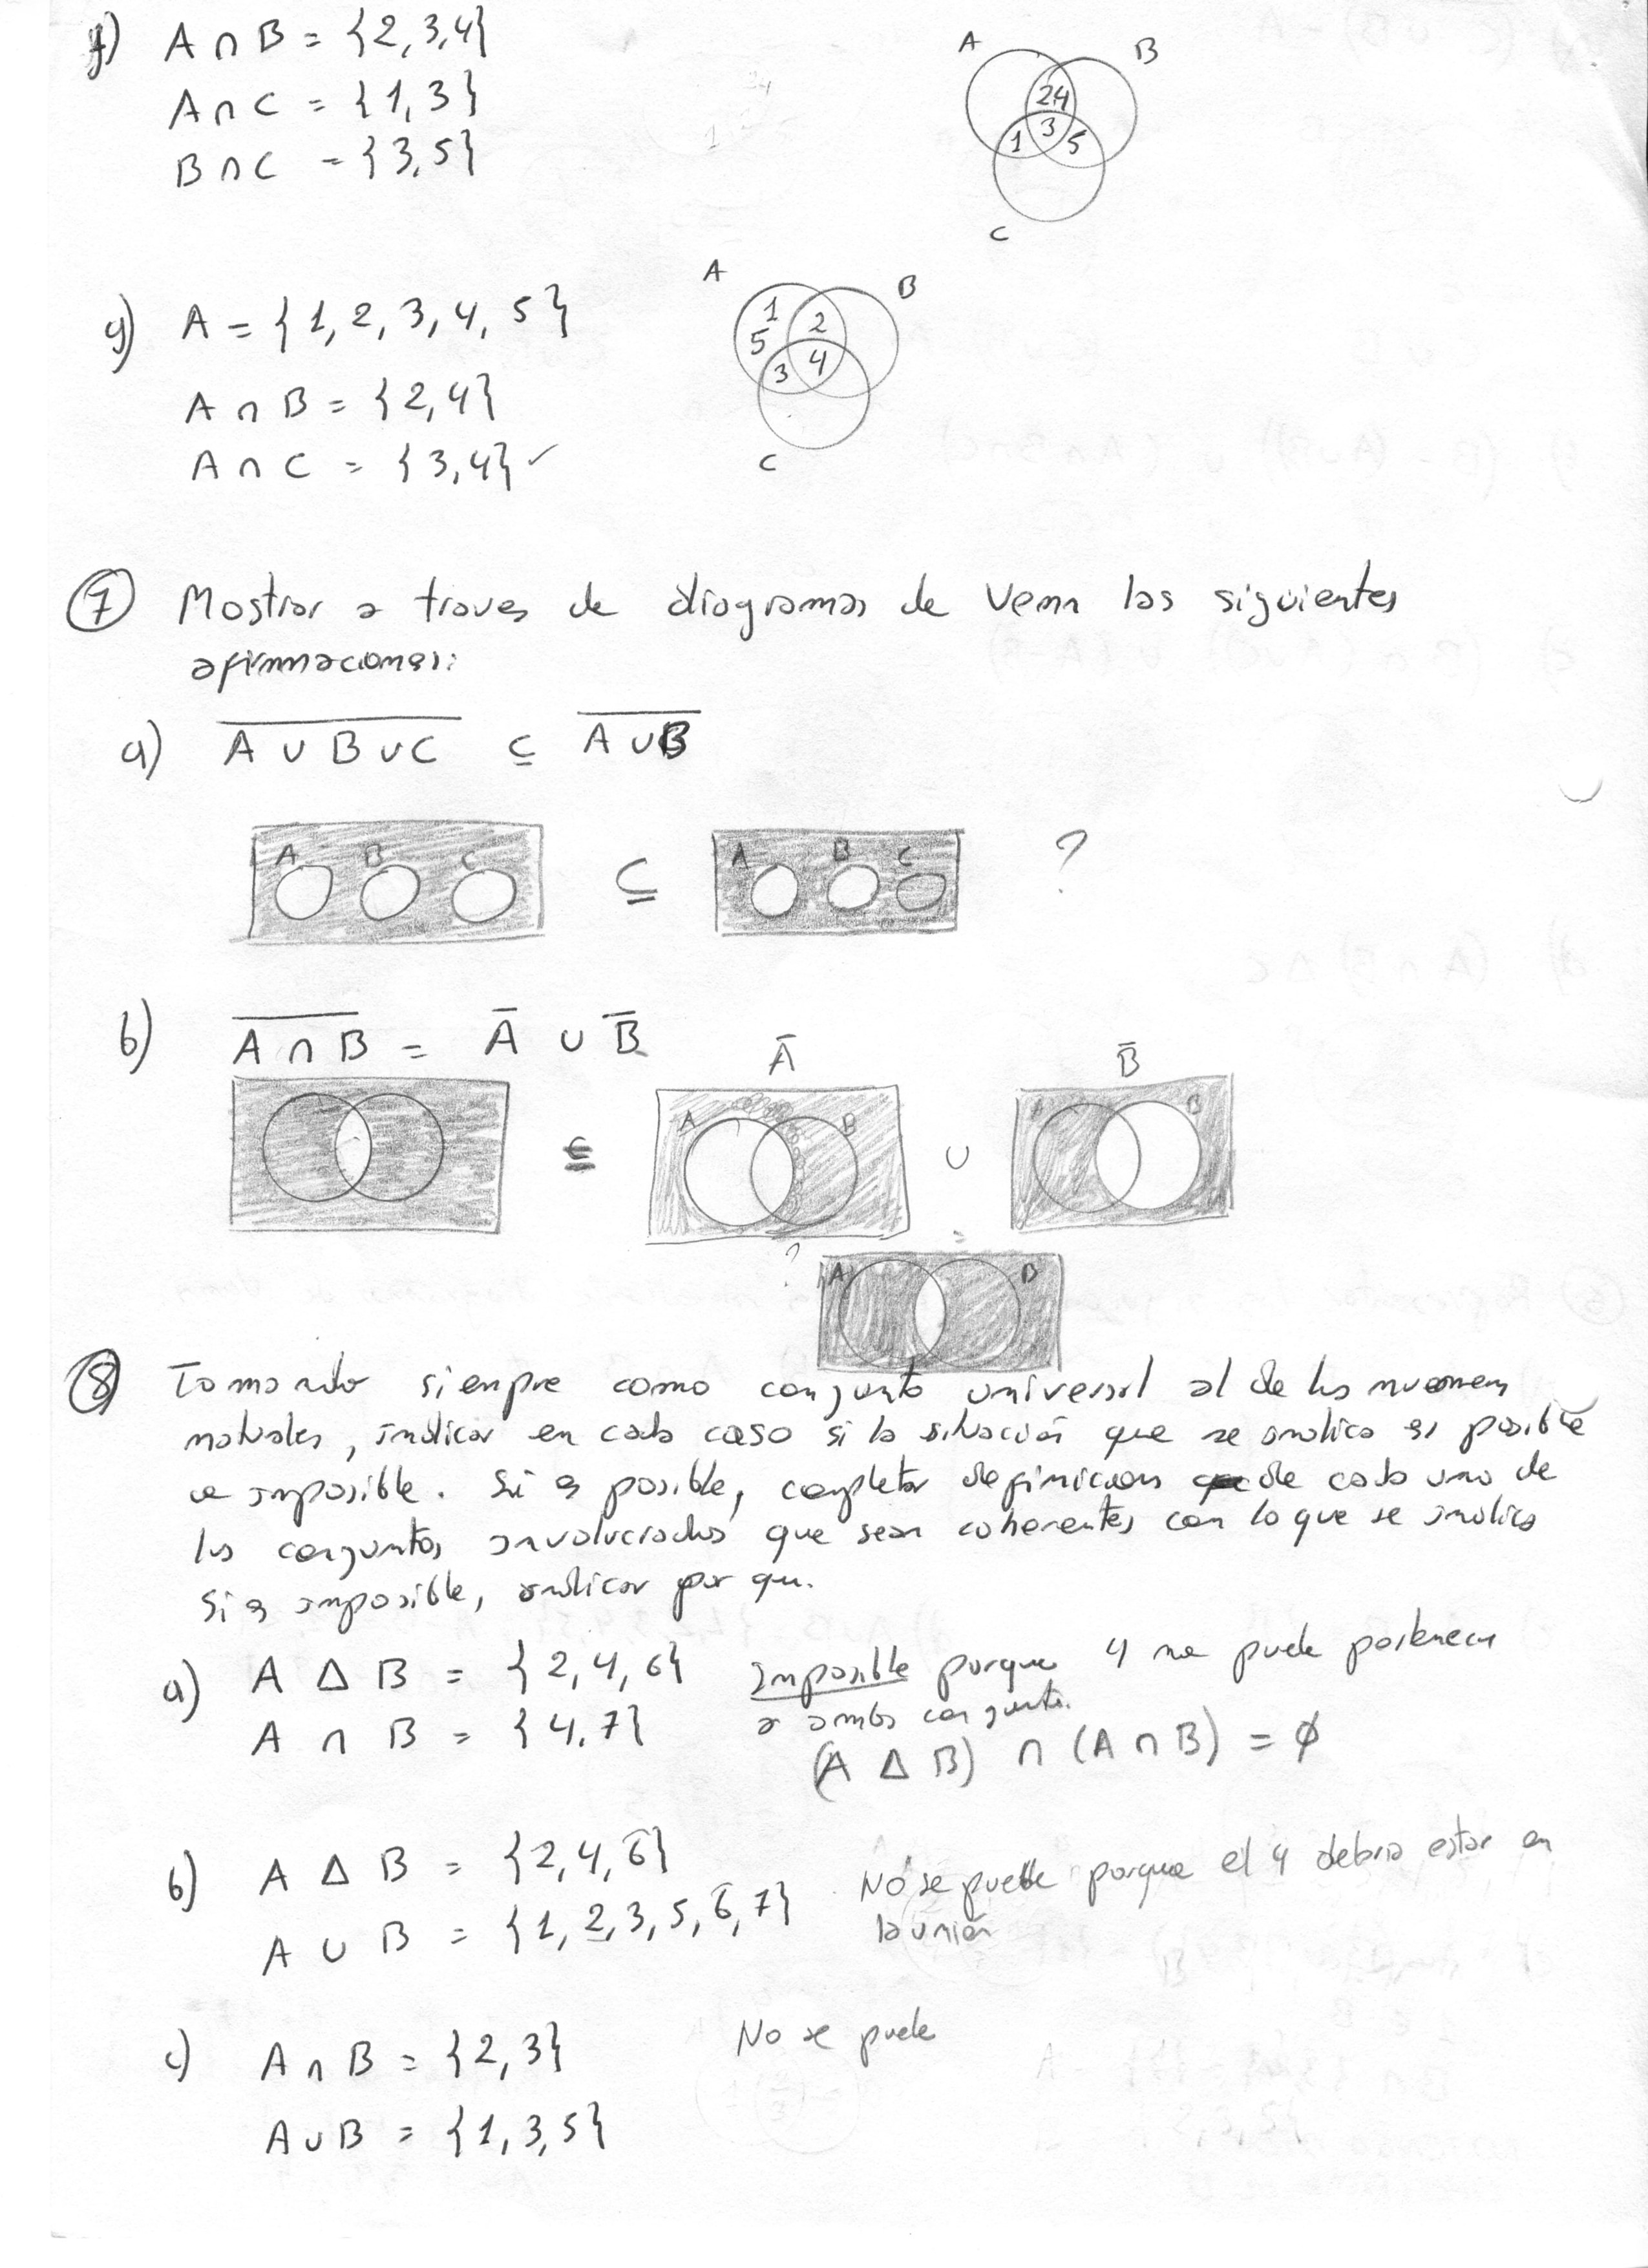 f) A ∩ B = {2, 3, 4}
A ∩ C = {1, 3}
B ∩ C = {3, 5}
A B
24
1 3 5
C
g) A = {1, 2, 3, 4, 5}
A ∩ B = {2, 4}
A ∩ C = {3, 4} ✓
A B
1 2
5
3 4
C
⑦ Mostrar a traves de diagramas de Venn las siguientes
afirmaciones:
a) \overline{A ∪ B ∪ C} ⊆ \overline{A ∪ B}
A B C ⊆ A B C ?
b) \overline{A ∩ B} = Ā ∪ B̄
Ā B̄
= A B ∪ A B
=
? A B
⑧ Tomando siempre como conjunto universal al de los numeros
naturales, indicar en cada caso si la situación que se indica es posible
o imposible. Si es posible, completar definicion de cada uno de
los conjuntos involucrados que sean coherentes con lo que se indica
Si es imposible, indicar por que.
a) A Δ B = {2, 4, 6} Imposible porque 4 no puede pertenecer
A ∩ B = {4, 7} a ambos conjuntos.
(A Δ B) ∩ (A ∩ B) = ∅
b) A Δ B = {2, 4, 6} No se puede porque el 4 debria estar en
A ∪ B = {1, 2, 3, 5, 6, 7} la unión
c) A ∩ B = {2, 3} No se puede
A ∪ B = {1, 3, 5}